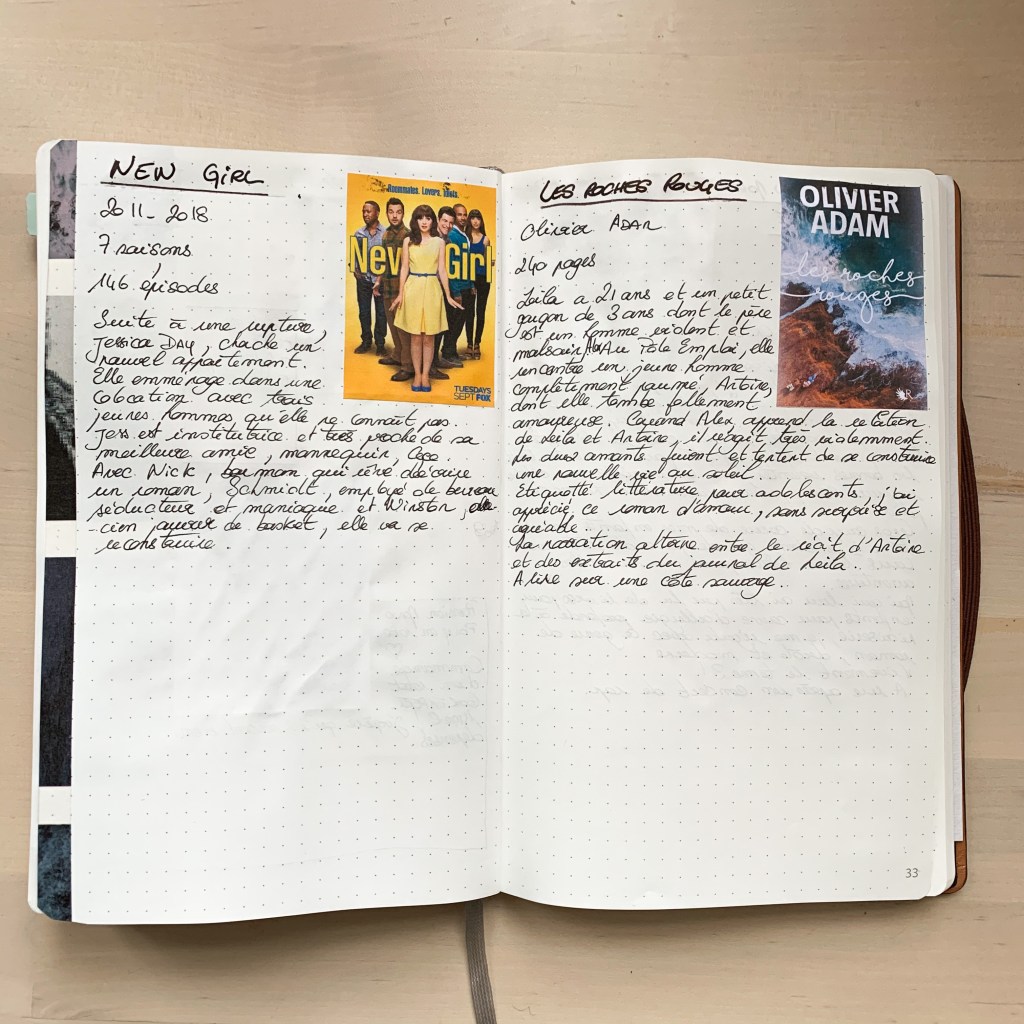 NEW GIRL
2011-2018
7 saisons
146 épisodes
Suite à une rupture,
Jessica DAY, cherche un
nouvel appartement.
Elle emménage dans une
colocation avec trois
jeunes hommes qu'elle ne connaît pas.
Jess est institutrice et très proche de sa
meilleure amie, mannequin, Cece.
Avec Nick, barman qui rêve d'écrire
un roman, Schmidt, employé de bureau
séducteur et maniaque et Winston, an-
-cien joueur de basket, elle va se
reconstruire.
Roommates. Lovers. Idiots.
New Girl
TUESDAYS
SEPT FOX
LES ROCHES ROUGES
Olivier ADAM
240 pages
Leila a 21 ans et un petit
garçon de 3 ans dont le père
est un homme violent et
malsain, Alex. Au Pôle Emploi, elle
rencontre un jeune homme
complètement paumé, Antoine,
dont elle tombe follement
amoureuse. Quand Alex apprend la relation
de Leila et Antoine, il réagit très violemment.
Les deux amants fuient et tentent de se construire
une nouvelle vie au soleil.
Etiquetté littérature pour adolescents, j'ai
apprécié ce roman d'amour, sans surprise et
agréable.
La narration alterne entre le récit d'Antoine
et des extraits du journal de Leila.
A lire sur une côte sauvage.
OLIVIER
ADAM
les roches
rouges
R
33